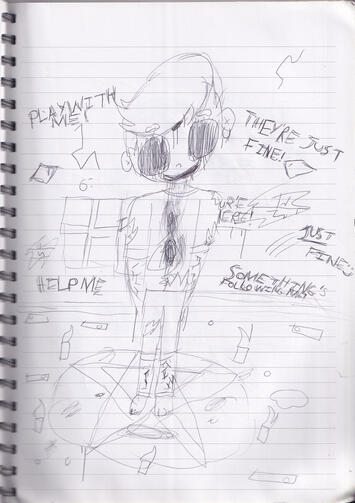 PLAY WITH
ME!
THEY'RE JUST
FINE!
6
JUST
FINE
HELP ME
SOMETHING'S
FOLLOWING